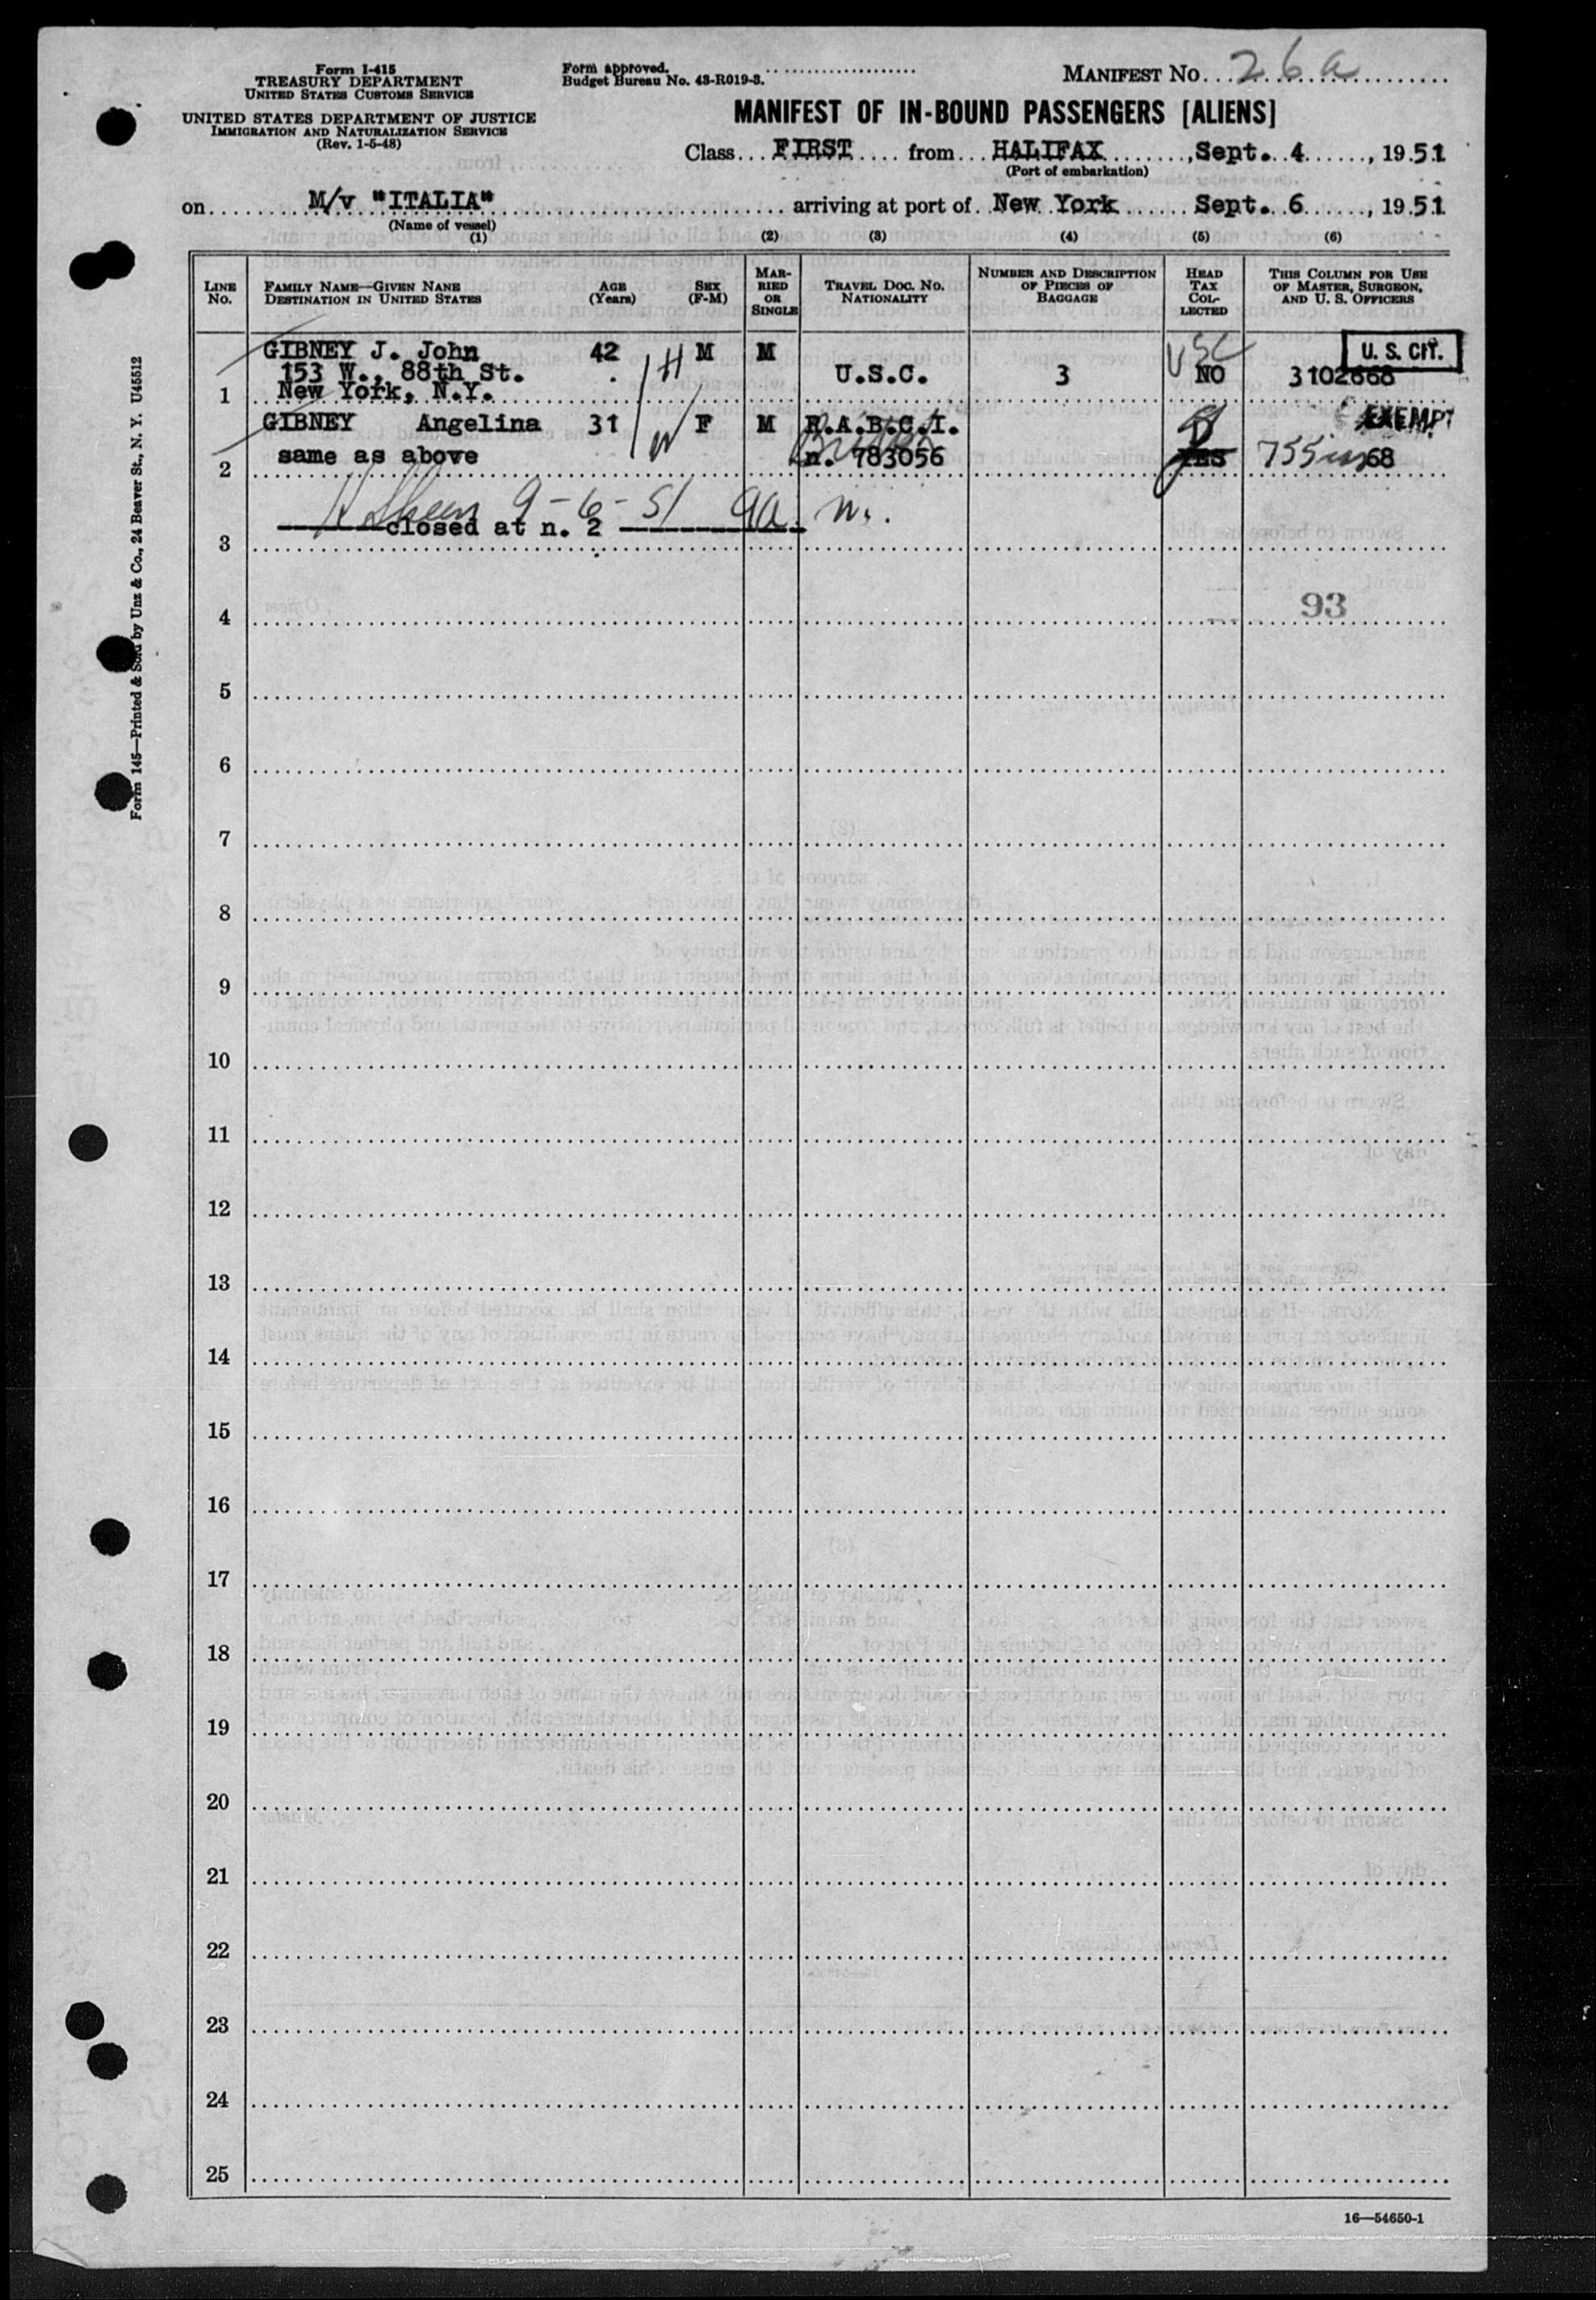 Form I-415
TREASURY DEPARTMENT
UNITED STATES CUSTOMS SERVICE
UNITED STATES DEPARTMENT OF JUSTICE
IMMIGRATION AND NATURALIZATION SERVICE
(Rev. 1-5-48)
Form approved.
Budget Bureau No. 43-R019-3.
MANIFEST NO. 26a
MANIFEST OF IN-BOUND PASSENGERS [ALIENS]
Class FIRST from HALIFAX, Sept. 4, 1951
(Port of embarkation)
on M/v "ITALIA" arriving at port of New York Sept. 6, 1951
(Name of vessel)
(1) (2) (3) (4) (5) (6)
LINE NO.
FAMILY NAME—GIVEN NANE
DESTINATION IN UNITED STATES
AGE (Years)
SEX (F-M)
MARRIED OR SINGLE
TRAVEL DOC. NO.
NATIONALITY
NUMBER AND DESCRIPTION OF PIECES OF BAGGAGE
HEAD TAX COLLECTED
THIS COLUMN FOR USE OF MASTER, SURGEON, AND U. S. OFFICERS
GIBNEY J. John 42 H M M USC U. S. CIT.
153 W., 88th St. U.S.C. 3 NO 3102668
1 New York, N.Y.
GIBNEY Angelina 31 W F M R.A.B.C.I. British EXEMPT
2 same as above n. 783056 YES 755 68
9-6-51 9a. m.
3 closed at n. 2
93
4
5
6
7
8
9
10
11
12
13
14
15
16
17
18
19
20
21
22
23
24
25
16—54650-1
Form 145—Printed & Sold by Unz & Co., 24 Beaver St., N. Y. U45512